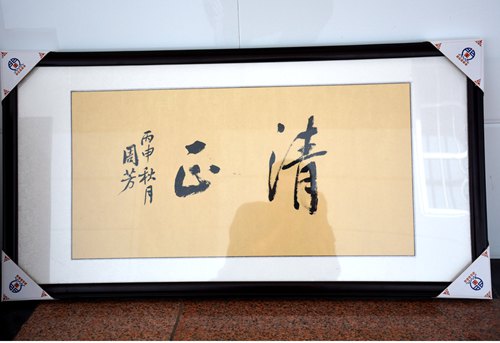 清正
丙申秋月
周芳